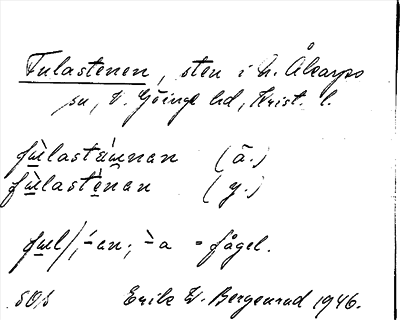 Fulastenen, sten i N. Åkarps
sn, V. Göinge hd, Krist. l.
fùlastáinan (ä.)
fùlastènan (y.)
ful/, ́-an; ̀-a = fågel.
Erik W. Bergenrud 1946.